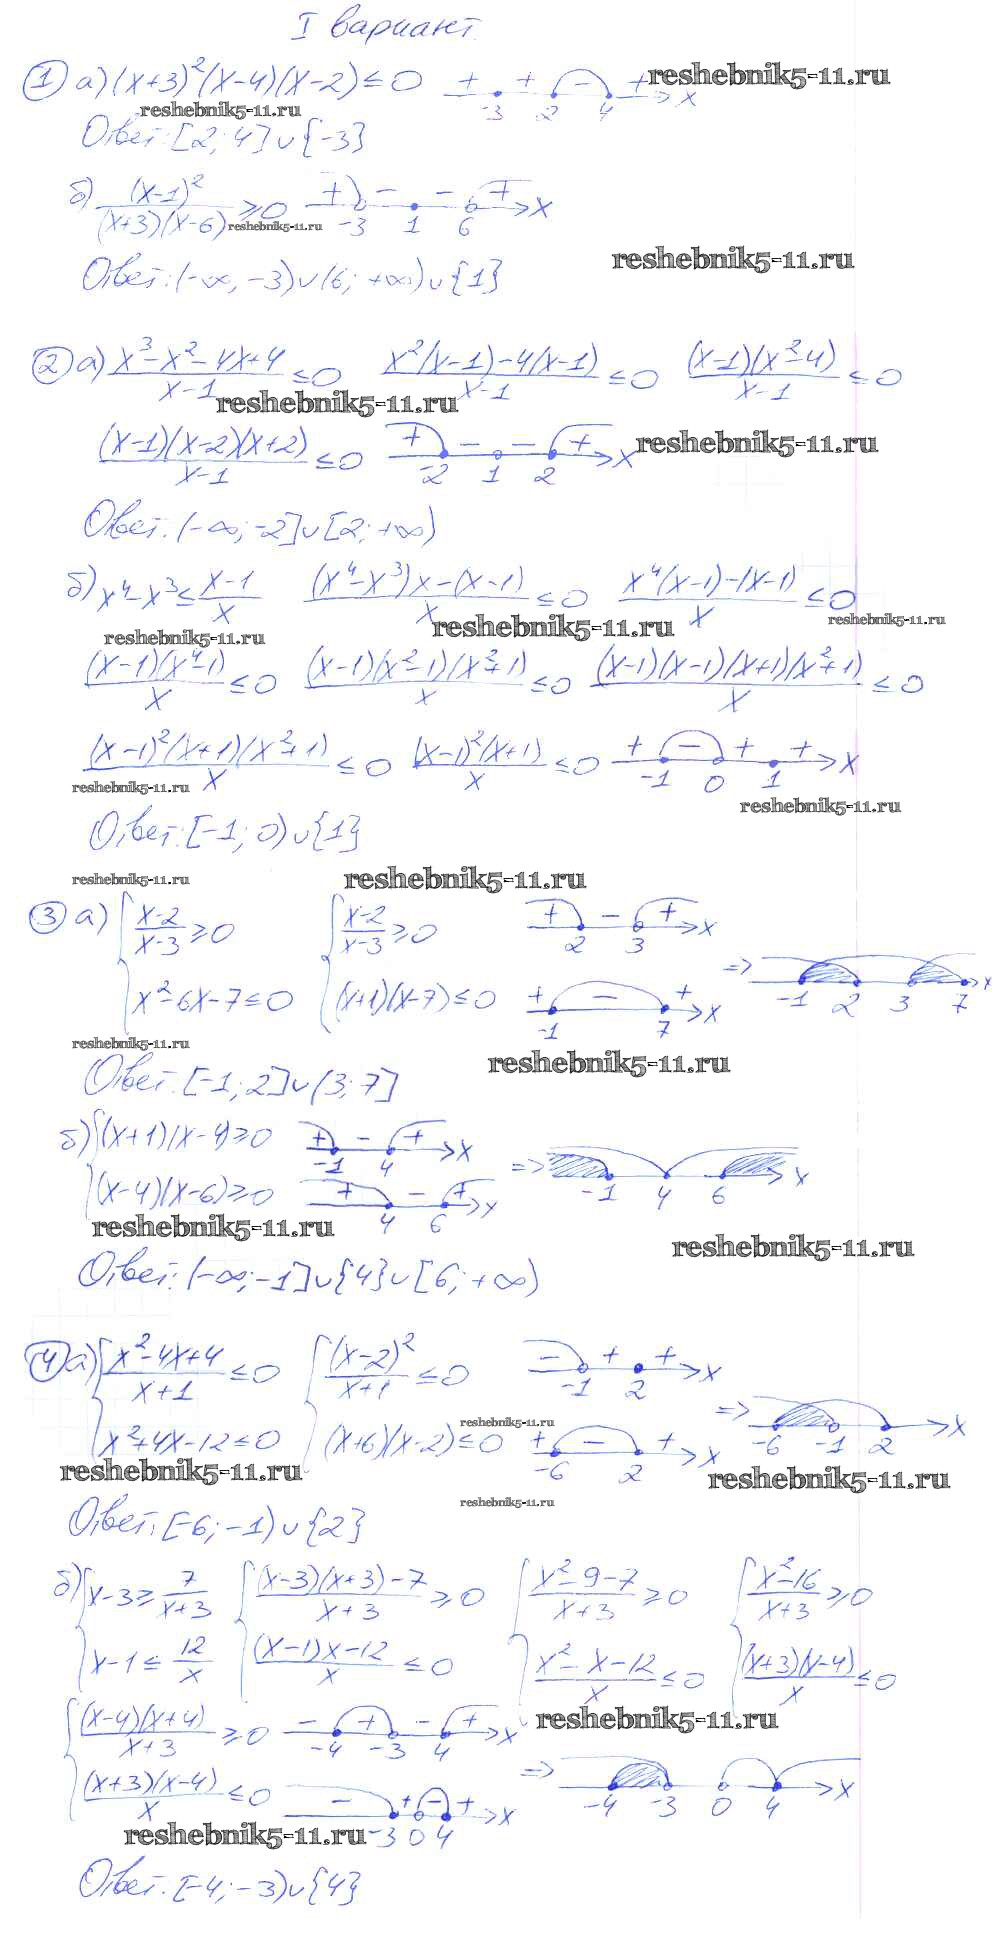 I вариант
① а) (x+3)²(x-4)(x-2) ≤ 0 + + - + -3 2 4 x reshebnik5-11.ru
reshebnik5-11.ru
Ответ: [2; 4] ∪ {-3}
б) (x-1)²/(x+3)(x-6) ≥ 0 + - - + -3 1 6 x
reshebnik5-11.ru
Ответ: (-∞; -3) ∪ (6; +∞) ∪ {1} reshebnik5-11.ru
② а) x³-x²-4x+4/x-1 ≤ 0 x²(x-1)-4(x-1)/x-1 ≤ 0 (x-1)(x²-4)/x-1 ≤ 0
reshebnik5-11.ru
(x-1)(x-2)(x+2)/x-1 ≤ 0 + - - + -2 1 2 x reshebnik5-11.ru
Ответ: (-∞; -2] ∪ [2; +∞)
б) x⁴-x³ ≤ x-1/x (x⁴-x³)x-(x-1)/x ≤ 0 x⁴(x-1)-(x-1)/x ≤ 0
reshebnik5-11.ru reshebnik5-11.ru reshebnik5-11.ru
(x-1)(x⁴-1)/x ≤ 0 (x-1)(x²-1)(x²+1)/x ≤ 0 (x-1)(x-1)(x+1)(x²+1)/x ≤ 0
(x-1)²(x+1)(x²+1)/x ≤ 0 (x-1)²(x+1)/x ≤ 0 + - + + -1 0 1 x
reshebnik5-11.ru reshebnik5-11.ru
Ответ: [-1; 0) ∪ {1}
reshebnik5-11.ru reshebnik5-11.ru
③ а) { x-2/x-3 ≥ 0 { x-2/x-3 ≥ 0 + - + 2 3 x
x²-6x-7 ≤ 0 (x+1)(x-7) ≤ 0 + - + -1 7 x => -1 2 3 7 x
reshebnik5-11.ru reshebnik5-11.ru
Ответ: [-1; 2] ∪ (3; 7]
б) { (x+1)(x-4) ≥ 0 + - + -1 4 x
(x-4)(x-6) ≥ 0 + - + 4 6 x => -1 4 6 x
reshebnik5-11.ru reshebnik5-11.ru
Ответ: (-∞; -1] ∪ {4} ∪ [6; +∞)
④ а) { x²-4x+4/x+1 ≤ 0 { (x-2)²/x+1 ≤ 0 - + + -1 2 x
x²+4x-12 ≤ 0 (x+6)(x-2) ≤ 0 + - + -6 2 x => -6 -1 2 x
reshebnik5-11.ru reshebnik5-11.ru reshebnik5-11.ru
reshebnik5-11.ru
Ответ: [-6; -1) ∪ {2}
б) { x-3 ≥ 7/x+3 { (x-3)(x+3)-7/x+3 ≥ 0 { x²-9-7/x+3 ≥ 0 { x²-16/x+3 ≥ 0
x-1 ≤ 12/x (x-1)x-12/x ≤ 0 x²-x-12/x ≤ 0 (x+3)(x-4)/x ≤ 0
{ (x-4)(x+4)/x+3 ≥ 0 - + - + -4 -3 4 x reshebnik5-11.ru
(x+3)(x-4)/x ≤ 0 - + - + -3 0 4 x => -4 -3 0 4 x
reshebnik5-11.ru
Ответ: [-4; -3) ∪ {4}